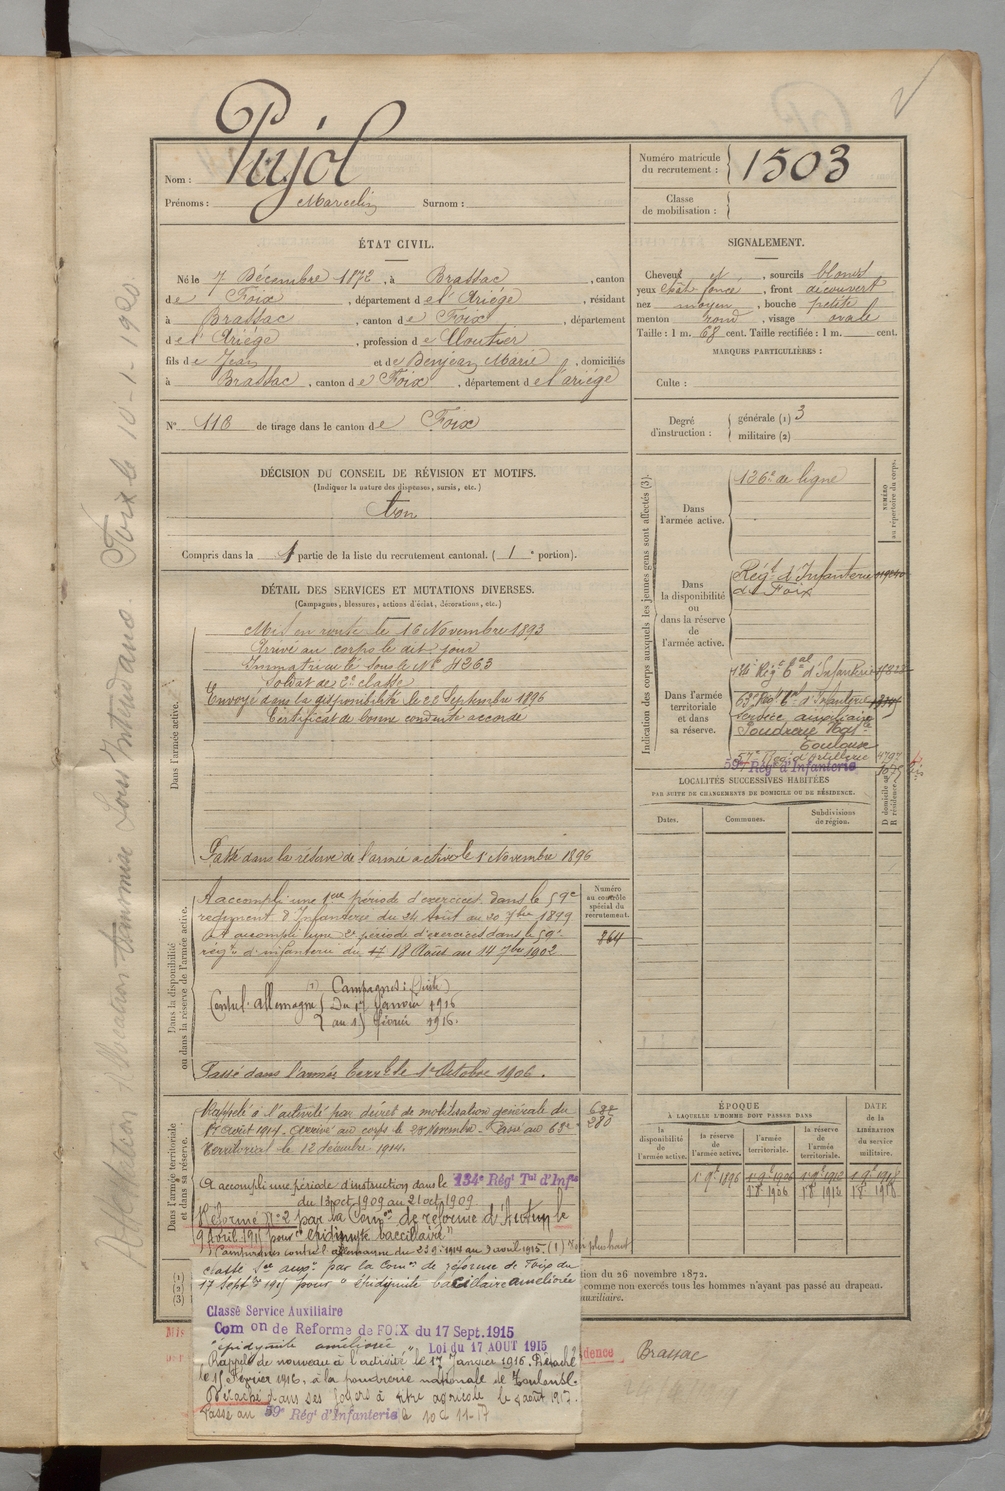 Nom : Pujol
Prénoms : Marcelin Surnom :
Numéro matricule du recrutement : 1503
Classe de mobilisation :
ÉTAT CIVIL.
Né le 7 Décembre 1872, à Brassac, canton
de Foix, département de l'Ariége, résidant
à Brassac, canton de Foix, département
de l'Ariége, profession de Cloutier
fils de Jean et de Benjean Marie, domiciliés
à Brassac, canton de Foix, département de l'ariége
N° 118 de tirage dans le canton de Foix
SIGNALEMENT.
Cheveux et, sourcils blonds
yeux chât foncé, front découvert
nez moyen, bouche petite
menton rond, visage ovale
Taille : 1 m. 68 cent. Taille rectifiée : 1 m. cent.
MARQUES PARTICULIÈRES :
Culte :
Degré d'instruction : générale (1) 3
militaire (2)
DÉCISION DU CONSEIL DE RÉVISION ET MOTIFS.
(Indiquer la nature des dispenses, sursis, etc.)
Bon
Compris dans la 1 partie de la liste du recrutement cantonal. (1e portion).
DÉTAIL DES SERVICES ET MUTATIONS DIVERSES.
(Campagnes, blessures, actions d'éclat, décorations, etc.)
Dans l'armée active.
Mis en route le 16 Novembre 1893
Arrivé au corps le dit jour
Immatriculé sous le N° 4263
Soldat de 2e classe
Envoyé dans la disponibilité le 22 Septembre 1896
Certificat de bonne conduite accordé
Passé dans la réserve de l'armée active le 1 Novembre 1896
Dans la disponibilité ou dans la réserve de l'armée active.
A accompli une 1ere période d'exercices dans le 59e
régiment d'Infanterie du 24 Août au 20 7bre 1899
A accompli une 2e période d'exercices dans le 59e
régt d'infanterie du 18 Août au 14 7bre 1902
(1) Campagnes : (Suite)
Contre l'Allemagne Du 17 Janvier 1916
au 15 février 1916.
Passé dans l'armée terrle le 1er Octobre 1906.
Numéro au contrôle spécial du recrutement.
364
Dans l'armée territoriale et dans sa réserve.
Rappelé à l'activité par décret de mobilisation générale du
1er août 1914. Arrivé au corps le 28 Novembre. Passé au 63e
Territorial le 12 décembre 1914.
280
A accompli une période d'instruction dans le 134e Régt Tal d'Infie
du 13 oct 1909 au 21 oct 1909
Réformé N° 2 par la Comon de réforme d'Autun le
9 Avril 1915 pour "épididymite baccillaire"
Campagnes contre l'allemagne du 1914 au 9 avril 1915. (1) Voir plus haut
classé Sce auxre par la Comon de réforme de Foix du
17 Septbre 1915 pour épididymite bacillaire améliorée
Classé Service Auxiliaire
Comon de Reforme de FOIX du 17 Sept. 1915
"épidymite améliorée" Loi du 17 AOUT 1915
Rappelé de nouveau à l'activité le 17 Janvier 1916. Détaché
le 15 Février 1916, à la poudrerie nationale de Toulouse.
Détaché dans ses foyers à titre agricole le août 1917.
Passé au 59e Régt d'Infanterie le 10-11-17
Indication des corps auxquels les jeunes gens sont affectés (3).
NUMÉRO au répertoire du corps.
Dans l'armée active.
136e de ligne
Dans la disponibilité ou dans la réserve de l'armée active.
Régt d'Infanterie
de Foix
Dans l'armée territoriale et dans sa réserve.
134e Régt Tal d'Infanterie
63e Régt Tal d'Infanterie
Service auxiliaire
Poudrerie Natle
Toulouse
57e Régt d'artillerie 4797
59e Régt d'Infanterie
LOCALITÉS SUCCESSIVES HABITÉES
PAR SUITE DE CHANGEMENTS DE DOMICILE OU DE RÉSIDENCE.
Dates. Communes. Subdivisions de région. D domicile ou R résidence.
ÉPOQUE
À LAQUELLE L'HOMME DOIT PASSER DANS
DATE DE LA LIBÉRATION du service militaire.
la disponibilité de l'armée active. la réserve de l'armée active. l'armée territoriale. la réserve de l'armée territoriale.
1 9bre 1896 1 9bre 1906 1 9bre 1912 1 9bre 1918
1 8bre 1906 1 8bre 1912 1 8bre 1918
(1)
(2)
(3)
tion du 26 novembre 1872.
comme non exercés tous les hommes n'ayant pas passé au drapeau.
auxiliaire.
dence Brassac
Allocation transmise Sous Intendance Foix le 10-1-1920